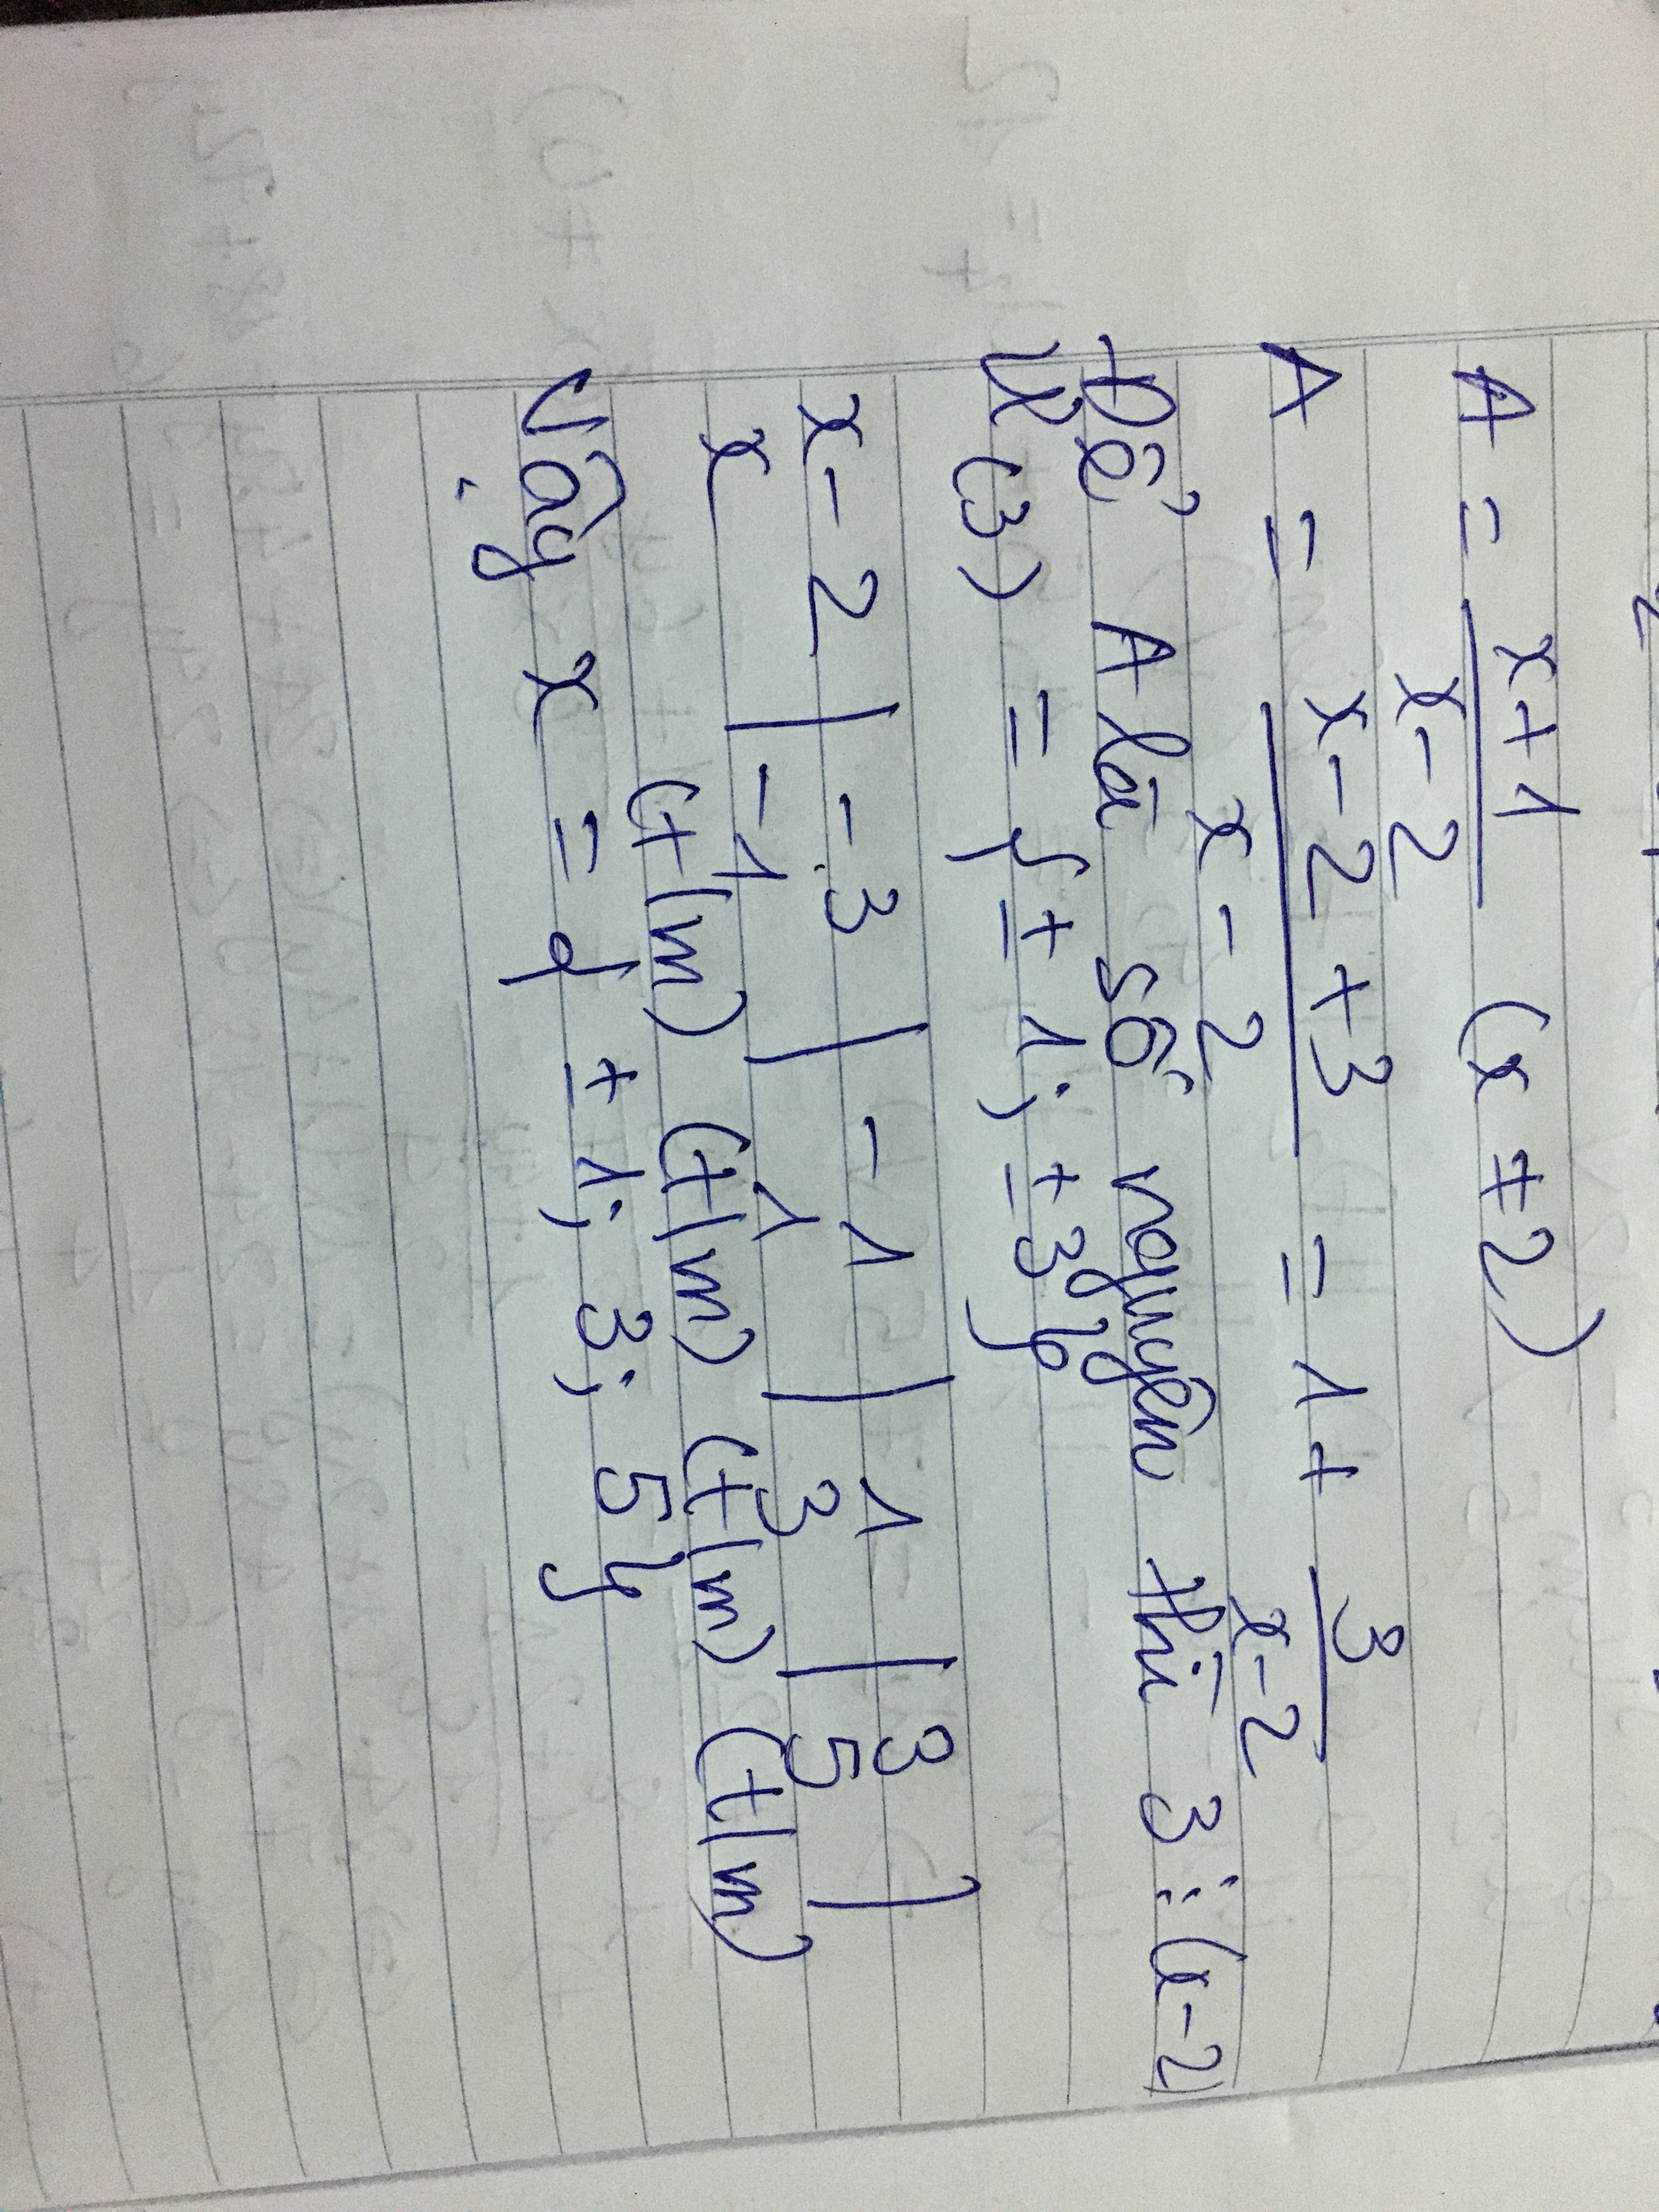 A = x+1 / x-2 (x ≠ 2)
A = x-2+3 / x-2 = 1 + 3 / x-2
Để A là số nguyên thì 3 ⋮ (x-2)
Ư(3) = { ± 1; ± 3}
x-2 | -3 | -1 | 1 | 3 |
x | -1 | 1 | 3 | 5 |
(t/m) (t/m) (t/m) (t/m)
Vậy x = { ± 1; 3; 5}